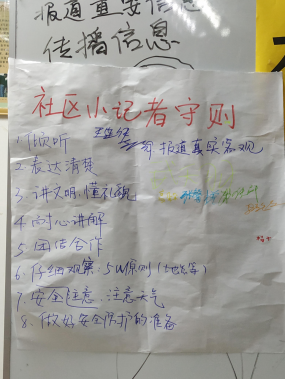 报道重要信息
传播信息
社区小记者守则
1倾听
9 报道真实客观
2 表达清楚
3 讲文明,懂礼貌
4 耐心讲解
5 团结合作
6 仔细观察:5W原则(
7 安全注意、注意天气
8、做好安全防护的准备